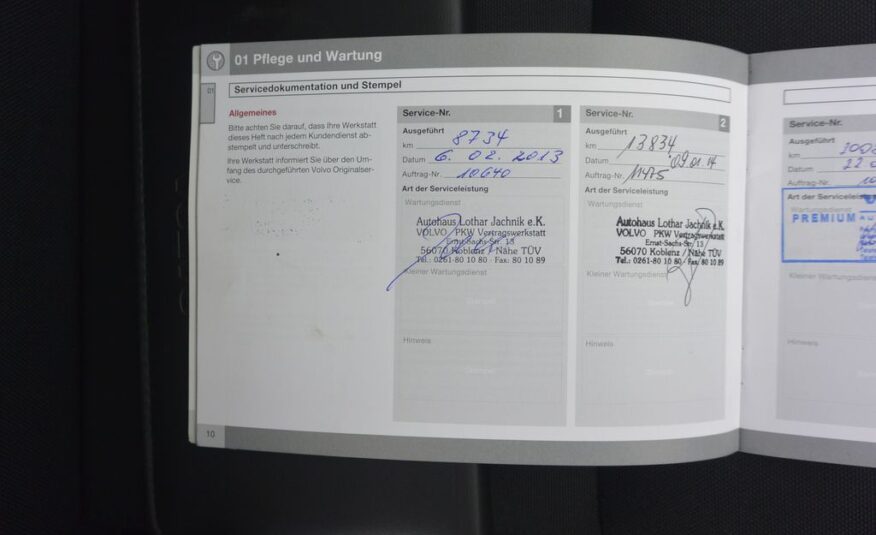 01 Pflege und Wartung
01
Servicedokumentation und Stempel
Allgemeines
Bitte achten Sie darauf, dass Ihre Werkstatt
dieses Heft nach jedem Kundendienst ab-
stempelt und unterschreibt.
Ihre Werkstatt informiert Sie über den Um-
fang des durchgeführten Volvo Originalser-
vice.
Service-Nr. 1
Ausgeführt
km 8734
Datum 6. 02. 2013
Auftrag-Nr. 10640
Art der Serviceleistung
Wartungsdienst
Autohaus Lothar Jachnik e.K.
VOLVO PKW Vertragswerkstatt
Ernst-Sachs-Str. 13
56070 Koblenz / Nähe TÜV
Tel.: 0261-80 10 80 · Fax: 80 10 89
Kleiner Wartungsdienst
Stempel
Hinweis
Stempel
Service-Nr. 2
Ausgeführt
km 13834
Datum 09.01.14
Auftrag-Nr. 11475
Art der Serviceleistung
Wartungsdienst
Autohaus Lothar Jachnik e.K.
VOLVO PKW Vertragswerkstatt
Ernst-Sachs-Str. 13
56070 Koblenz / Nähe TÜV
Tel.: 0261-80 10 80 / Fax: 80 10 89
Kleiner Wartungsdienst
Stempel
Hinweis
Stempel
Service-Nr.
Ausgeführt
km
Datum 22.0
Auftrag-Nr. 10
Art der Serviceleis
Wartungsdienst
PREMIUM AU
Kleiner Wartungsdie
Hinweis
10